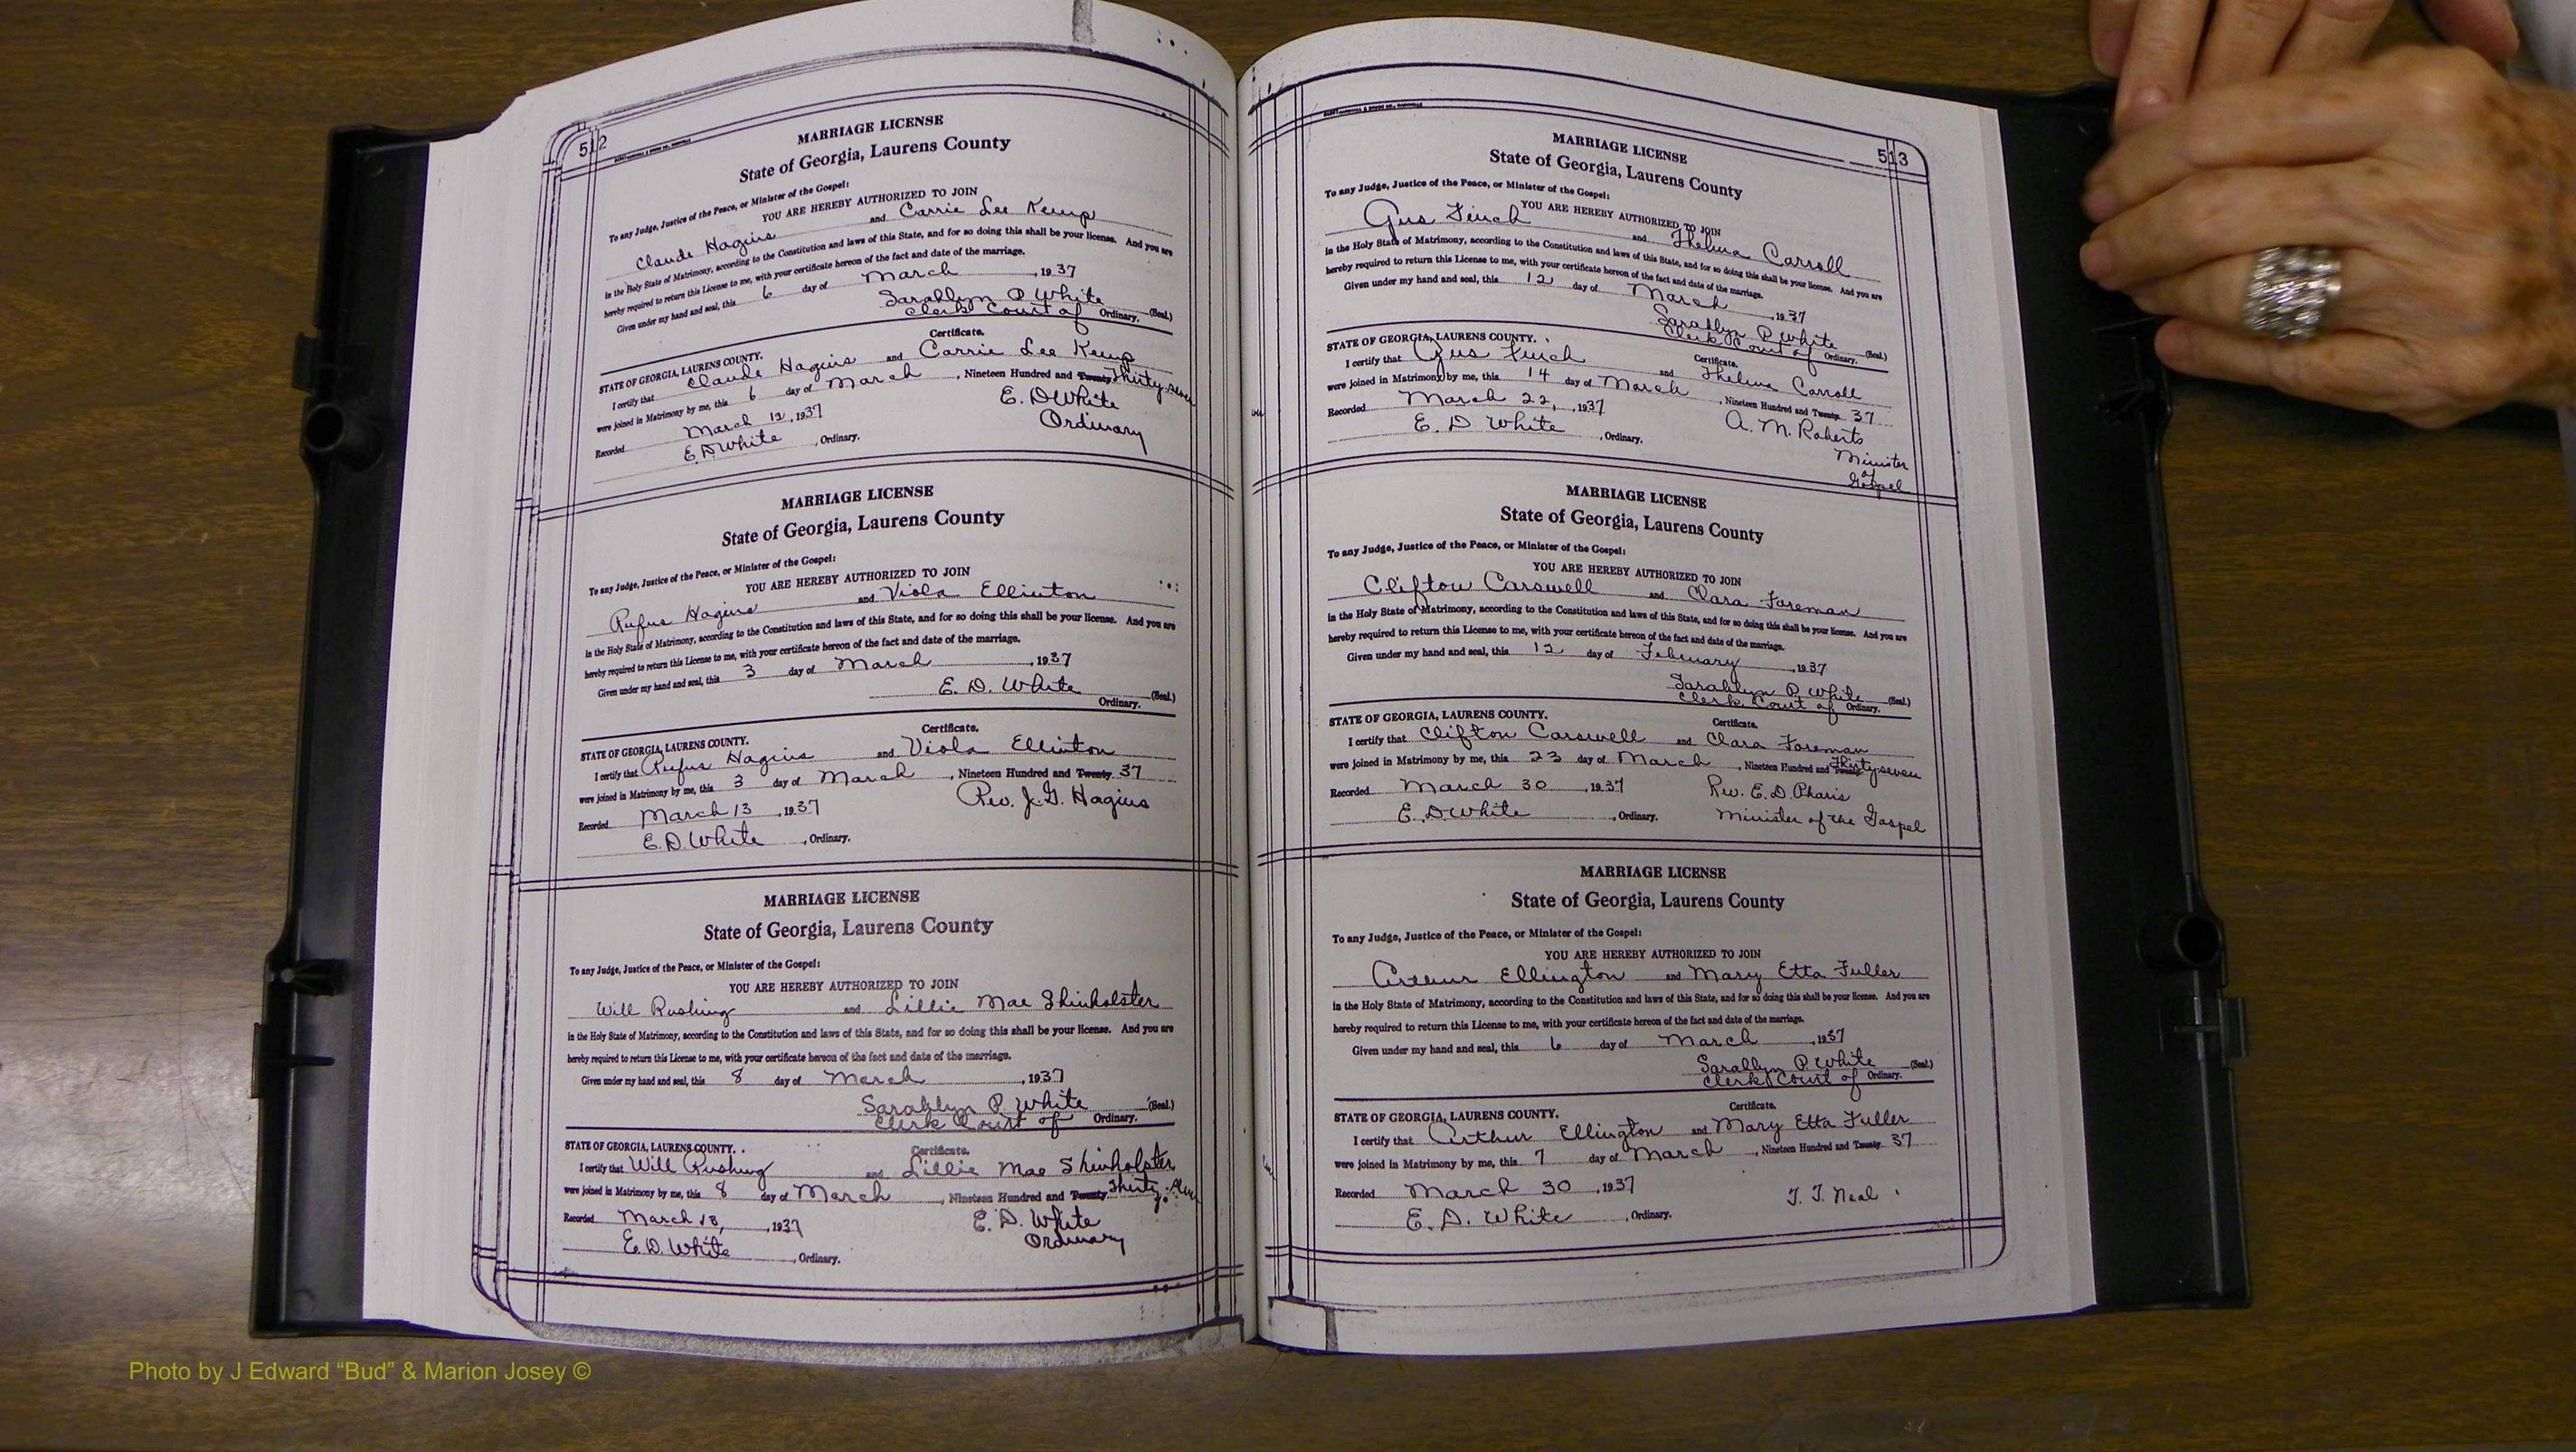 512
MARRIAGE LICENSE
State of Georgia, Laurens County
To any Judge, Justice of the Peace, or Minister of the Gospel:
YOU ARE HEREBY AUTHORIZED TO JOIN
Claude Hagins and Carrie Lee Kemp
in the Holy State of Matrimony, according to the Constitution and laws of this State, and for so doing this shall be your license. And you are
hereby required to return this License to me, with your certificate hereon of the fact and date of the marriage.
Given under my hand and seal, this 6 day of March, 1937
Sarahlyn P. White (Seal.)
Clerk Court of Ordinary.
Certificate.
STATE OF GEORGIA, LAURENS COUNTY.
I certify that Claude Hagins and Carrie Lee Kemp
were joined in Matrimony by me, this 6 day of March, Nineteen Hundred and Twenty Thirty-seven
Recorded March 12, 1937 E. D White
E. D. White, Ordinary. Ordinary
MARRIAGE LICENSE
State of Georgia, Laurens County
To any Judge, Justice of the Peace, or Minister of the Gospel:
YOU ARE HEREBY AUTHORIZED TO JOIN
Rufus Hagins and Viola Ellinton
in the Holy State of Matrimony, according to the Constitution and laws of this State, and for so doing this shall be your license. And you are
hereby required to return this License to me, with your certificate hereon of the fact and date of the marriage.
Given under my hand and seal, this 3 day of March, 1937
E. D. White (Seal.)
Ordinary.
Certificate.
STATE OF GEORGIA, LAURENS COUNTY.
I certify that Rufus Hagins and Viola Ellinton
were joined in Matrimony by me, this 3 day of March, Nineteen Hundred and Twenty 37
Recorded March 13, 1937 Rev. J. G. Hagins
E. D. White, Ordinary.
MARRIAGE LICENSE
State of Georgia, Laurens County
To any Judge, Justice of the Peace, or Minister of the Gospel:
YOU ARE HEREBY AUTHORIZED TO JOIN
Will Rushing and Lillie Mae Shinholster
in the Holy State of Matrimony, according to the Constitution and laws of this State, and for so doing this shall be your license. And you are
hereby required to return this License to me, with your certificate hereon of the fact and date of the marriage.
Given under my hand and seal, this 8 day of March, 1937
Sarahlyn P. White (Seal.)
Clerk Court of Ordinary.
Certificate.
STATE OF GEORGIA, LAURENS COUNTY.
I certify that Will Rushing and Lillie Mae Shinholster
were joined in Matrimony by me, this 8 day of March, Nineteen Hundred and Twenty Thirty
Recorded March 13, 1937 E. D. White
E. D. White, Ordinary. Ordinary
513
MARRIAGE LICENSE
State of Georgia, Laurens County
To any Judge, Justice of the Peace, or Minister of the Gospel:
YOU ARE HEREBY AUTHORIZED TO JOIN
Gus Finch and Thelma Carroll
in the Holy State of Matrimony, according to the Constitution and laws of this State, and for so doing this shall be your license. And you are
hereby required to return this License to me, with your certificate hereon of the fact and date of the marriage.
Given under my hand and seal, this 12 day of March, 1937
Sarahlyn P. White (Seal.)
Clerk Court of Ordinary.
Certificate.
STATE OF GEORGIA, LAURENS COUNTY.
I certify that Gus Finch and Thelma Carroll
were joined in Matrimony by me, this 14 day of March, Nineteen Hundred and Twenty 37
Recorded March 22, 1937 A. M. Roberts
E. D White, Ordinary. Minister
of
Gospel
MARRIAGE LICENSE
State of Georgia, Laurens County
To any Judge, Justice of the Peace, or Minister of the Gospel:
YOU ARE HEREBY AUTHORIZED TO JOIN
Clifton Carswell and Clara Foreman
in the Holy State of Matrimony, according to the Constitution and laws of this State, and for so doing this shall be your license. And you are
hereby required to return this License to me, with your certificate hereon of the fact and date of the marriage.
Given under my hand and seal, this 12 day of February, 1937
Sarahlyn P. White (Seal.)
Clerk Court of Ordinary.
Certificate.
STATE OF GEORGIA, LAURENS COUNTY.
I certify that Clifton Carswell and Clara Foreman
were joined in Matrimony by me, this 23 day of March, Nineteen Hundred and Twenty Thirtyseven
Recorded March 30, 1937 Rev. E. D. Pharis
E. D White, Ordinary. Minister of the Gospel
MARRIAGE LICENSE
State of Georgia, Laurens County
To any Judge, Justice of the Peace, or Minister of the Gospel:
YOU ARE HEREBY AUTHORIZED TO JOIN
Arthur Ellington and Mary Etta Fuller
in the Holy State of Matrimony, according to the Constitution and laws of this State, and for so doing this shall be your license. And you are
hereby required to return this License to me, with your certificate hereon of the fact and date of the marriage.
Given under my hand and seal, this 6 day of March, 1937
Sarahlyn P. White (Seal.)
Clerk Court of Ordinary.
Certificate.
STATE OF GEORGIA, LAURENS COUNTY.
I certify that Arthur Ellington and Mary Etta Fuller
were joined in Matrimony by me, this 7 day of March, Nineteen Hundred and Twenty 37
Recorded March 30, 1937 T. T. Neal
E. D. White, Ordinary.
Photo by J Edward “Bud” & Marion Josey ©